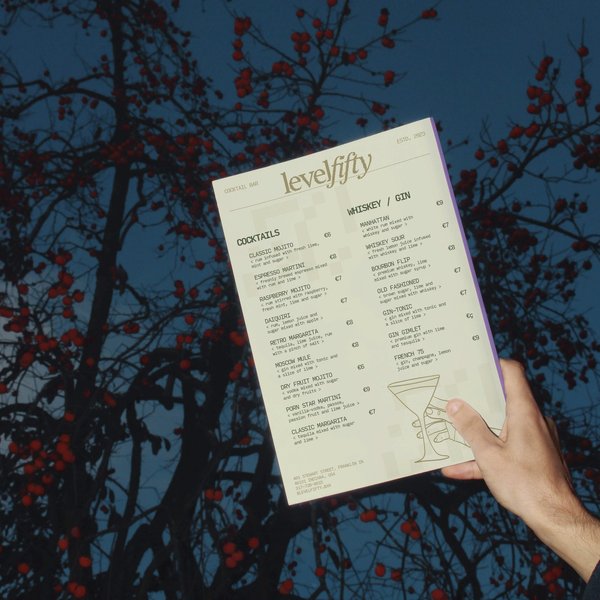 COCKTAIL BAR
levelfifty
ESTD. 2023
COCKTAILS
CLASSIC MOJITO €6
< rum infused with fresh lime,
mint and sugar >
ESPRESSO MARTINI €8
< freshly brewed espresso mixed
with rum and lime >
RASPBERRY MOJITO €7
< rum stirred with raspberry,
fresh mint, lime and sugar >
DAIQUIRI €7
< rum, lemon juice and
sugar mixed with apple >
RETRO MARGARITA €8
< tequila, lime juice, rum
with a pinch of salt >
MOSCOW MULE €8
< gin mixed with tonic and
a slice of lime >
DRY FRUIT MOJITO €6
< vodka mixed with sugar
and dry fruits >
PORN STAR MARTINI €9
< vanilla-vodka, passoa,
passion fruit and lime juice >
CLASSIC MARGARITA €7
< tequila mixed with sugar
and lime >
WHISKEY / GIN
MANHATTAN €9
< white rum mixed with
whiskey and sugar >
WHISKEY SOUR €7
< fresh lemon juice infused
with whiskey and lime >
BOURBON FLIP €8
< premium whiskey, lime
mixed with sugar syrup >
OLD FASHIONED €7
< brown sugar, lime and
sugar mixed with whiskey >
GIN-TONIC €7
< gin mixed with tonic and
a slice of lime >
GIN GIMLET
< premium gin with lime
and tequila >
FRENCH 75 €9
< gin, champagne, lemon
juice and sugar >
STEWART STREET, FRANKLIN
INDIANA, USA
@LEVELFIFTY.BAR